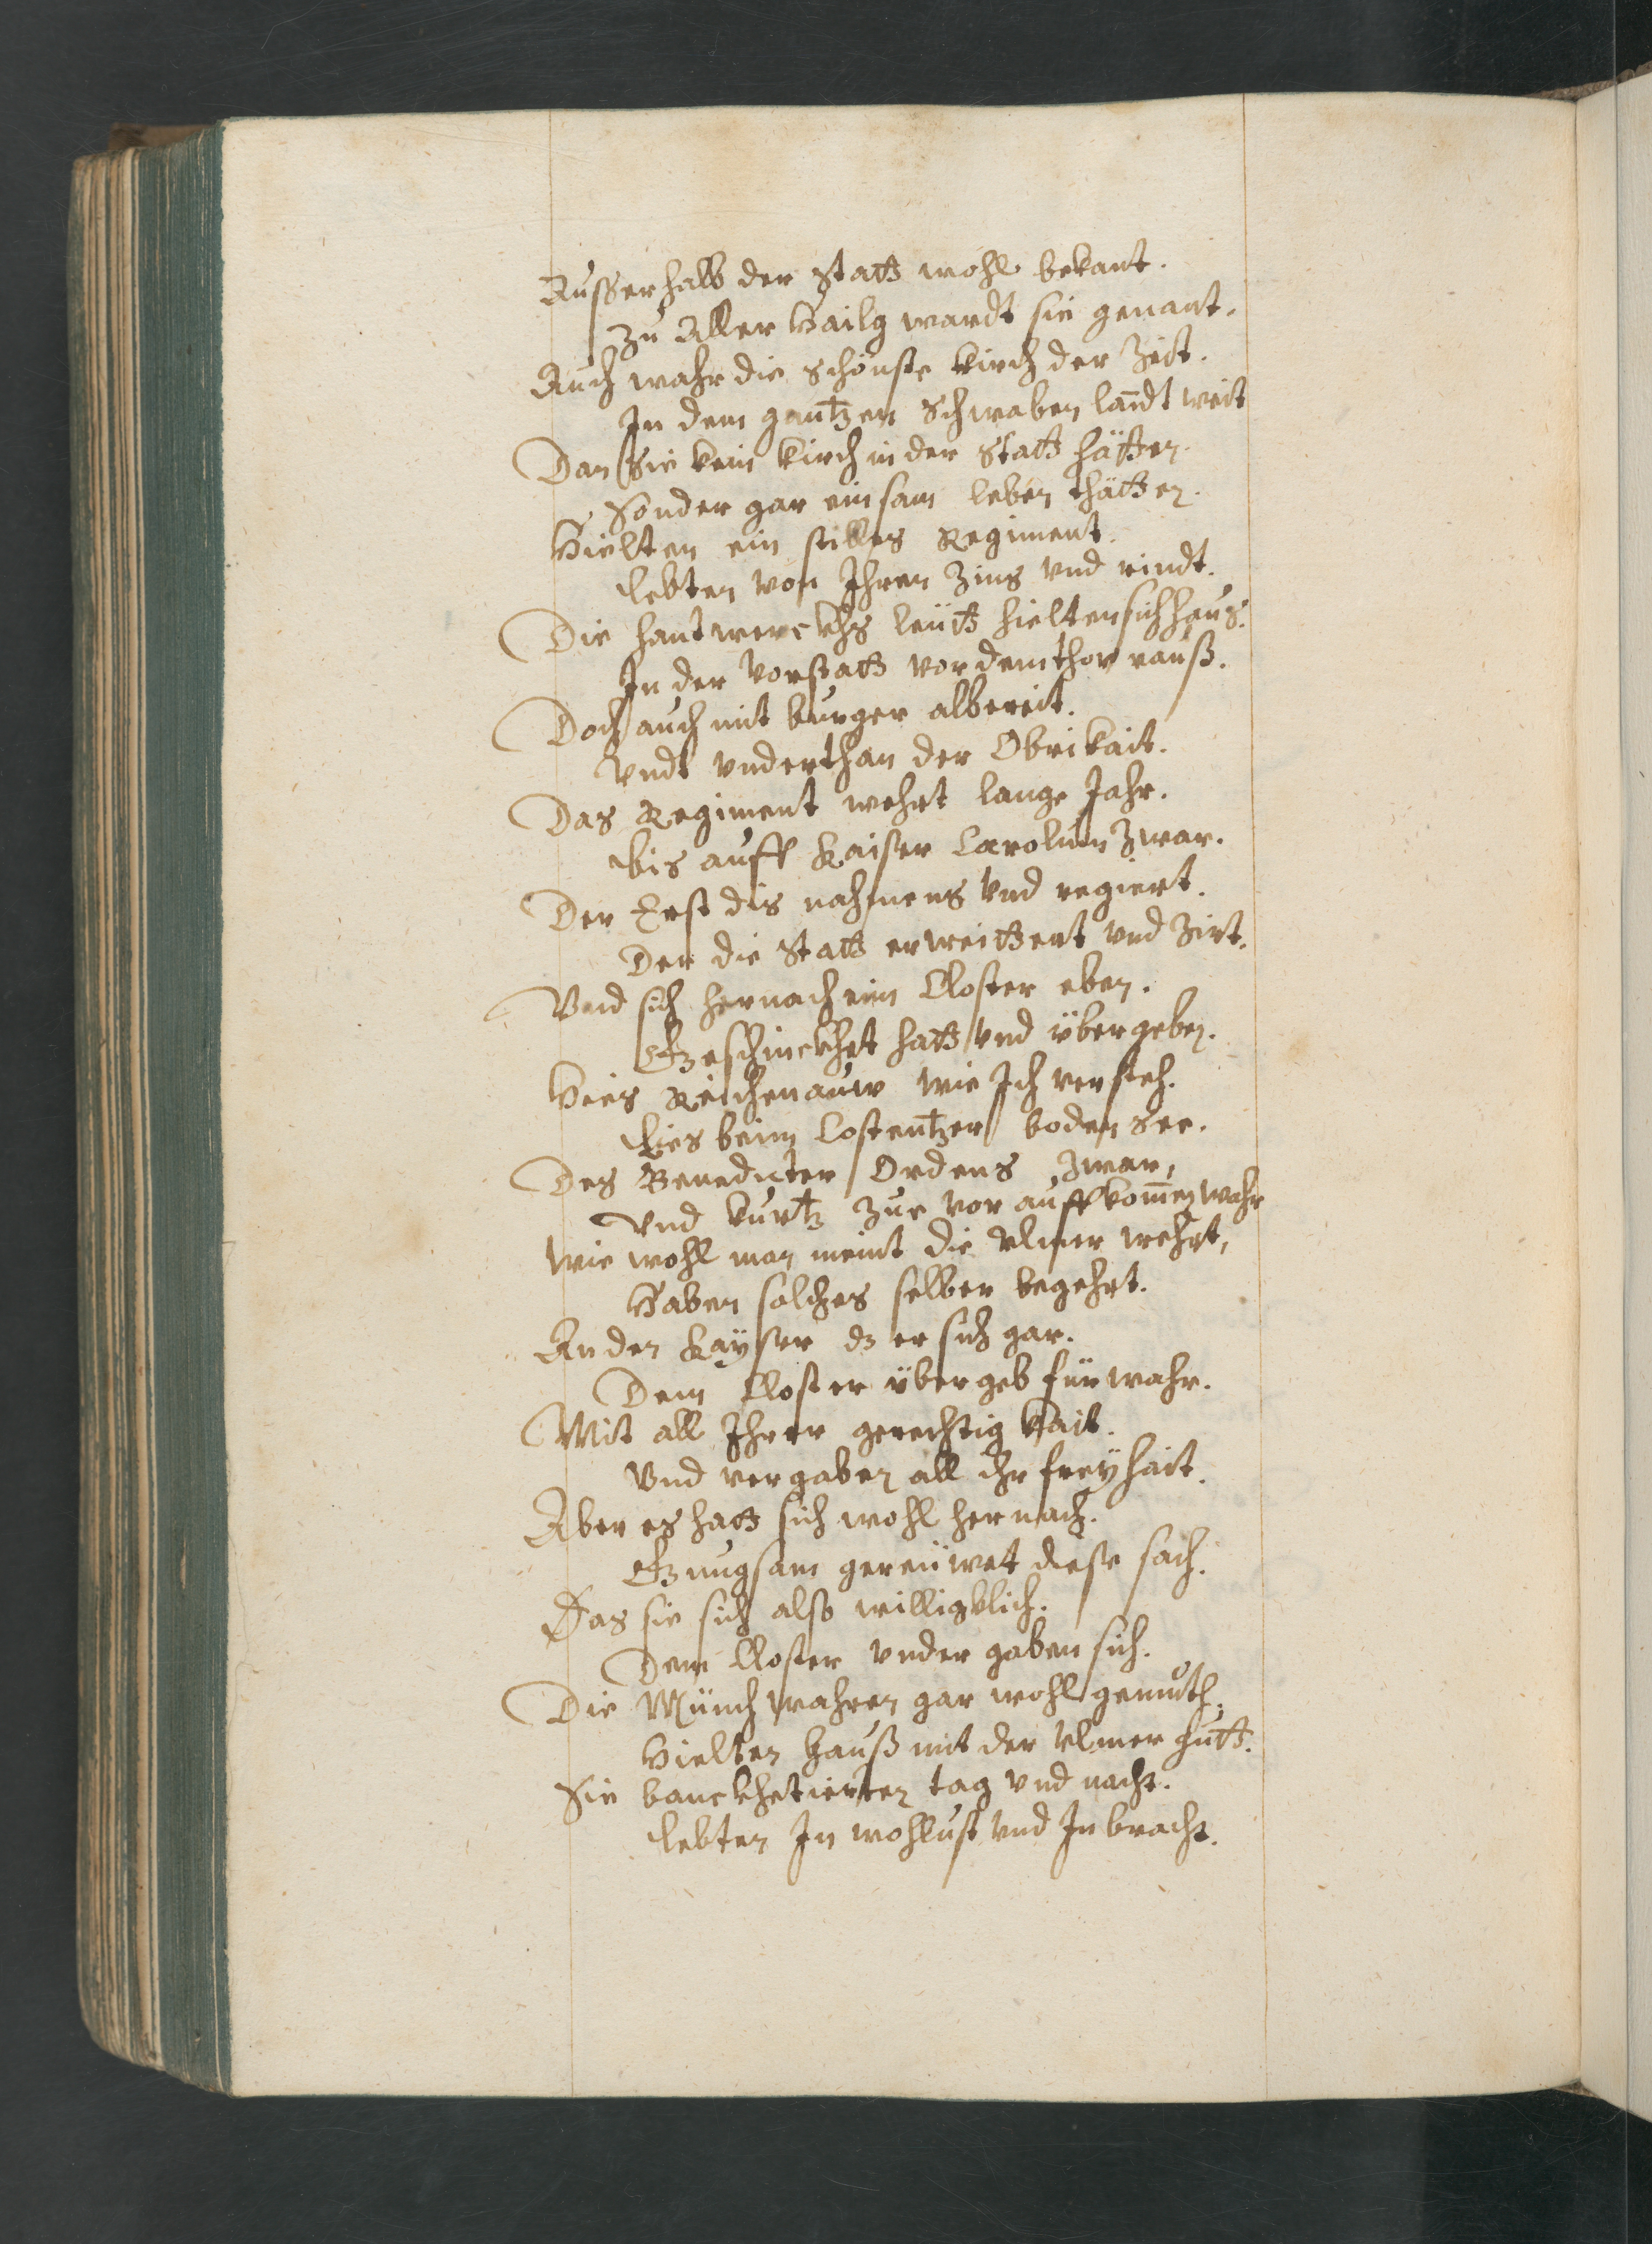 Ausserhalb der Statt wohl bekant.
Zu Aller Hailg wardt sie genant.
Auch wahr die schönste Kirch der Zeit.
In dem gantzen Schwaben landt weit
Dan sie kein Kirch in der Statt hätten.
Sonder gar einsam leben thätten.
Hielten ein stilles Regiment.
lebten von Ihren Zins vnd rindt.
Die hantwerckhs leütt hielten sich haus.
In der Vorstatt vor dem thor rauß.
Doch auch mit burger albereit.
Vndt vnderthan der Obrikait.
Das Regiment wehrt lange Jahr.
bis auff Kaiser Carolum Zwar.
Der Erst dis nahmens vnd regiert.
Der die Statt erweittert vnd Zirt.
Vnd sich hernach eim Closter eben.
Geschinckhet hatt vnd übergeben.
Hies Reichenauw wie Ich versteh.
Lies beim Costentzer boden See.
Des Benedicter Ordens Zwar,
Vnd kurtz Zue vor auffkomen wahr
Wie wohl man meint die Vlmer wehrt,
Haben solches selber begehrt.
An den Kayser dz er sich gar.
Dem Closter übergeb fürwahr.
Mit all Ihrer gerechtig kait.
Vnd vergaben all ihr freyhait.
Aber es hatt sich wohl hernach.
Gnugsam gereüwet diese sach.
Das sie sich also williglich.
Dem Closter vnder gaben sich.
Die Münch wahren gar wohl gemuth.
Hielten Hauß mit der Vlmer hutt.
Sie banckhetierten tag vnd nacht.
lebten In wohllust vnd In bracht.